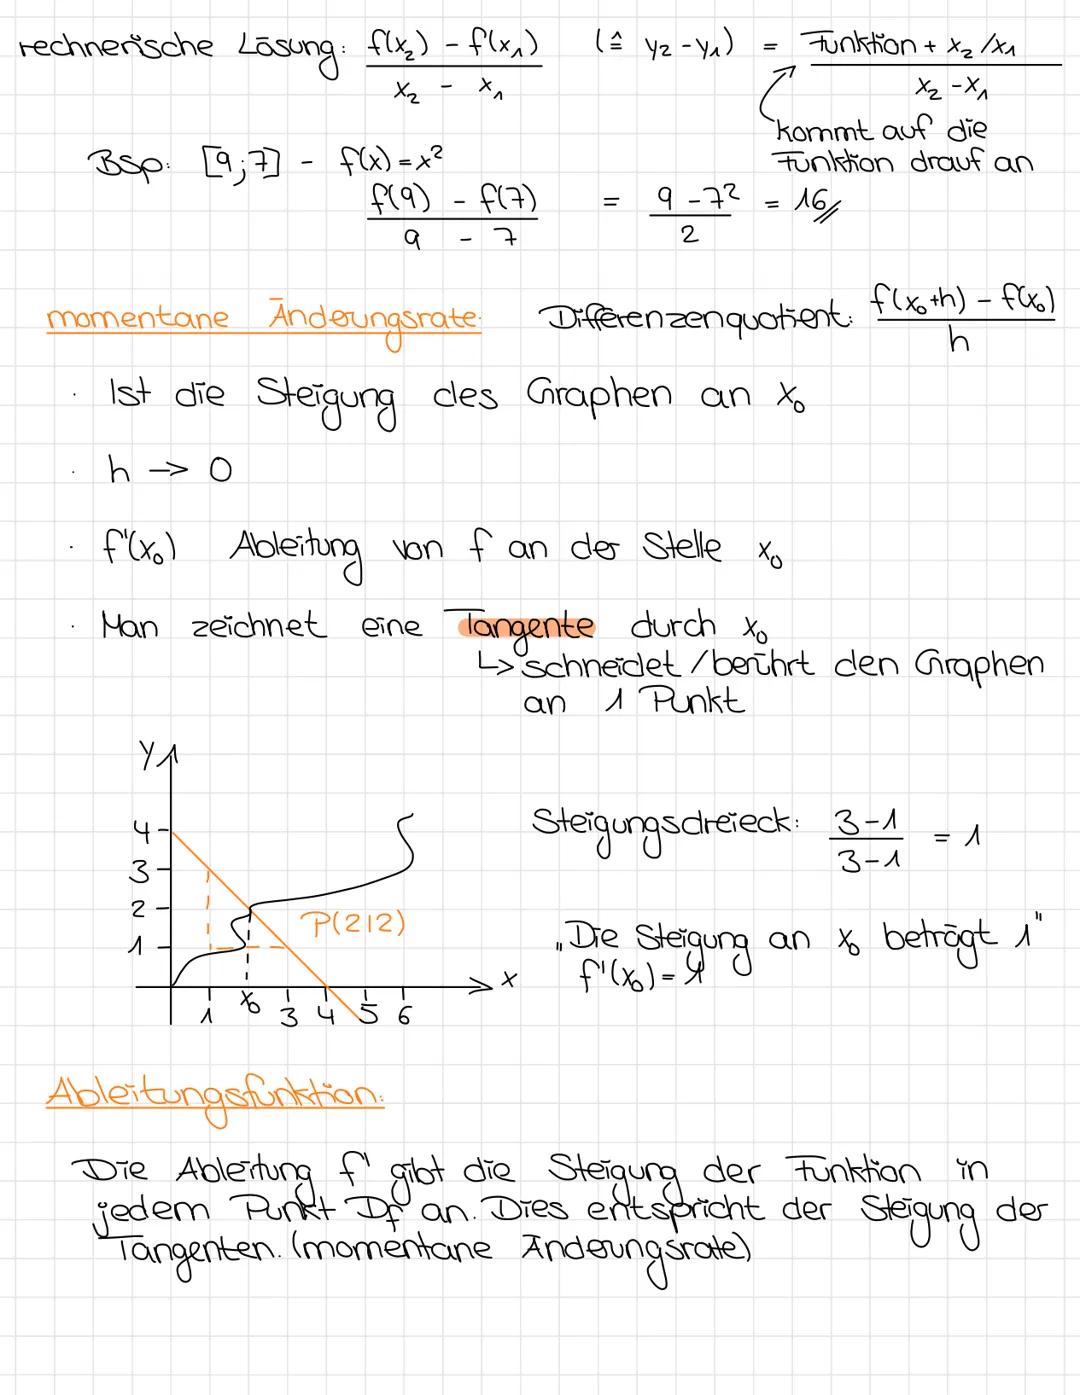 rechnerische Lösung: f(x₂) - f(x₁) / x₂ - x₁ (≙ y₂ - y₁) = Funktion + x₂/x₁ / x₂ - x₁
kommt auf die
Funktion drauf an
Bsp: [9;7] - f(x) = x²
f(9) - f(7) / 9 - 7 = 9 - 7² / 2 = 16
momentane Änderungsrate: Differenzenquotient: f(x₀+h) - f(x₀) / h
· Ist die Steigung des Graphen an x₀
· h -> 0
· f'(x₀) Ableitung von f an der Stelle x₀
· Man zeichnet eine Tangente durch x₀
↳ schneidet / berührt den Graphen
an 1 Punkt
y
4
3
2
1
P(2|2)
x
1 x₀ 3 4 5 6
Steigungsdreieck: 3-1 / 3-1 = 1
„Die Steigung an x₀ beträgt 1"
f'(x₀) = 1
Ableitungsfunktion:
Die Ableitung f' gibt die Steigung der Funktion in
jedem Punkt Df an. Dies entspricht der Steigung der
Tangenten. (momentane Änderungsrate)